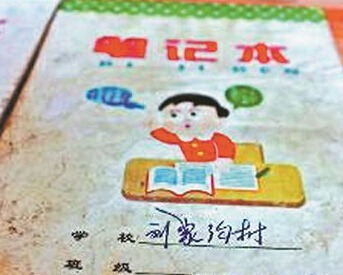 笔记本
BI JI BEN
学校 刘家沟村
班级